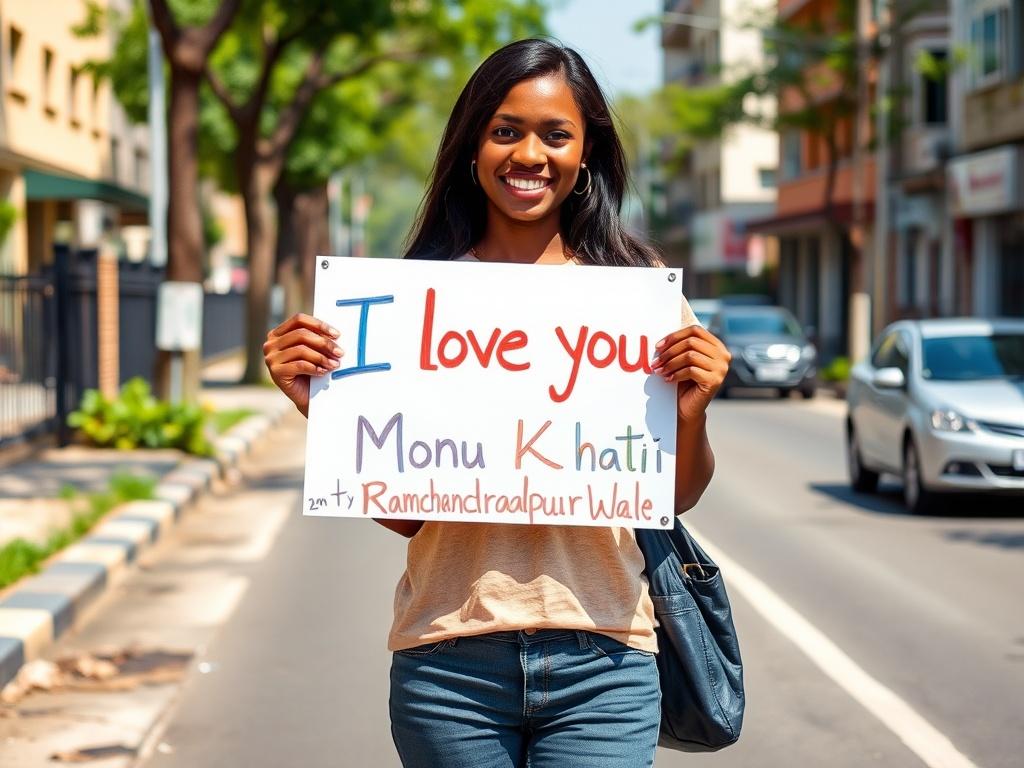 I love you
Monu Khatii
2m +y Ramchandraalpuur Wale